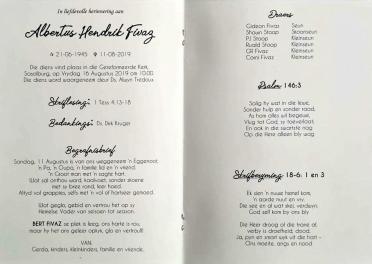 In liefdevolle herinnering aan
Albertus Hendrik Fivaz
21-06-1945 11-08-2019
Die diens vind plaas in die Gereformeerde Kerk,
Sasolburg, op Vrydag 16 Augustus 2019 om 10:00.
Die diens word waargeneem deur Ds. Alwyn Tredoux
Skriflesing: 1 Tess 4:13-18
Bedankings: Ds. Dirk Kruger
Begrafnisbrief
Sondag, 11 Augustus is van ons weggeneem 'n Eggenoot,
'n Pa, 'n Oupa, 'n familie lid en 'n vriend.
'n Groot man met 'n sagte hart.
Wat sal onthou word, kaalvoet, sonder skoene
met sy bree rand, leer hoed.
Altyd vol grappies, selfs met 'n vol of hartseer gemoed.
Wat geglo, gebid en vertrou het op sy
Hemelse Vader van seisoen tot seisoen.
BERT FIVAZ se plek is leeg, ons harte is rou,
maar hy het ons geleer opkyk, glo en vertrou!!!
VAN:
Gerda, kinders, kleinkinders, familie en vriende.
Draers
Gideon Fivaz Seun
Shaun Stoop Skoonseun
PJ Stoop Kleinseun
Ruald Stoop Kleinseun
GR Fivaz Kleinseun
Coni Fivaz Kleinseun
Psalm 146:3
Salig hy wat in die leuse,
Sonder hulp en sonder raad,
As hom alles wil begewe,
Vlug tot God, sy toeverlaat,
En ook in die swartste nag
Op die Here alleen bly wag.
Skrifberyming 18-6: 1 en 3
Ek dien 'n nuwe hemel kom,
'n aarde nuut en vry.
Die see en al wat skei, verdwyn.
God self kom by ons bly
Die Heer droog al die trane af,
verby is droefheid, dood.
Ja, pyn en smart wyk uit die hart -
Ons moeite, angs en nood